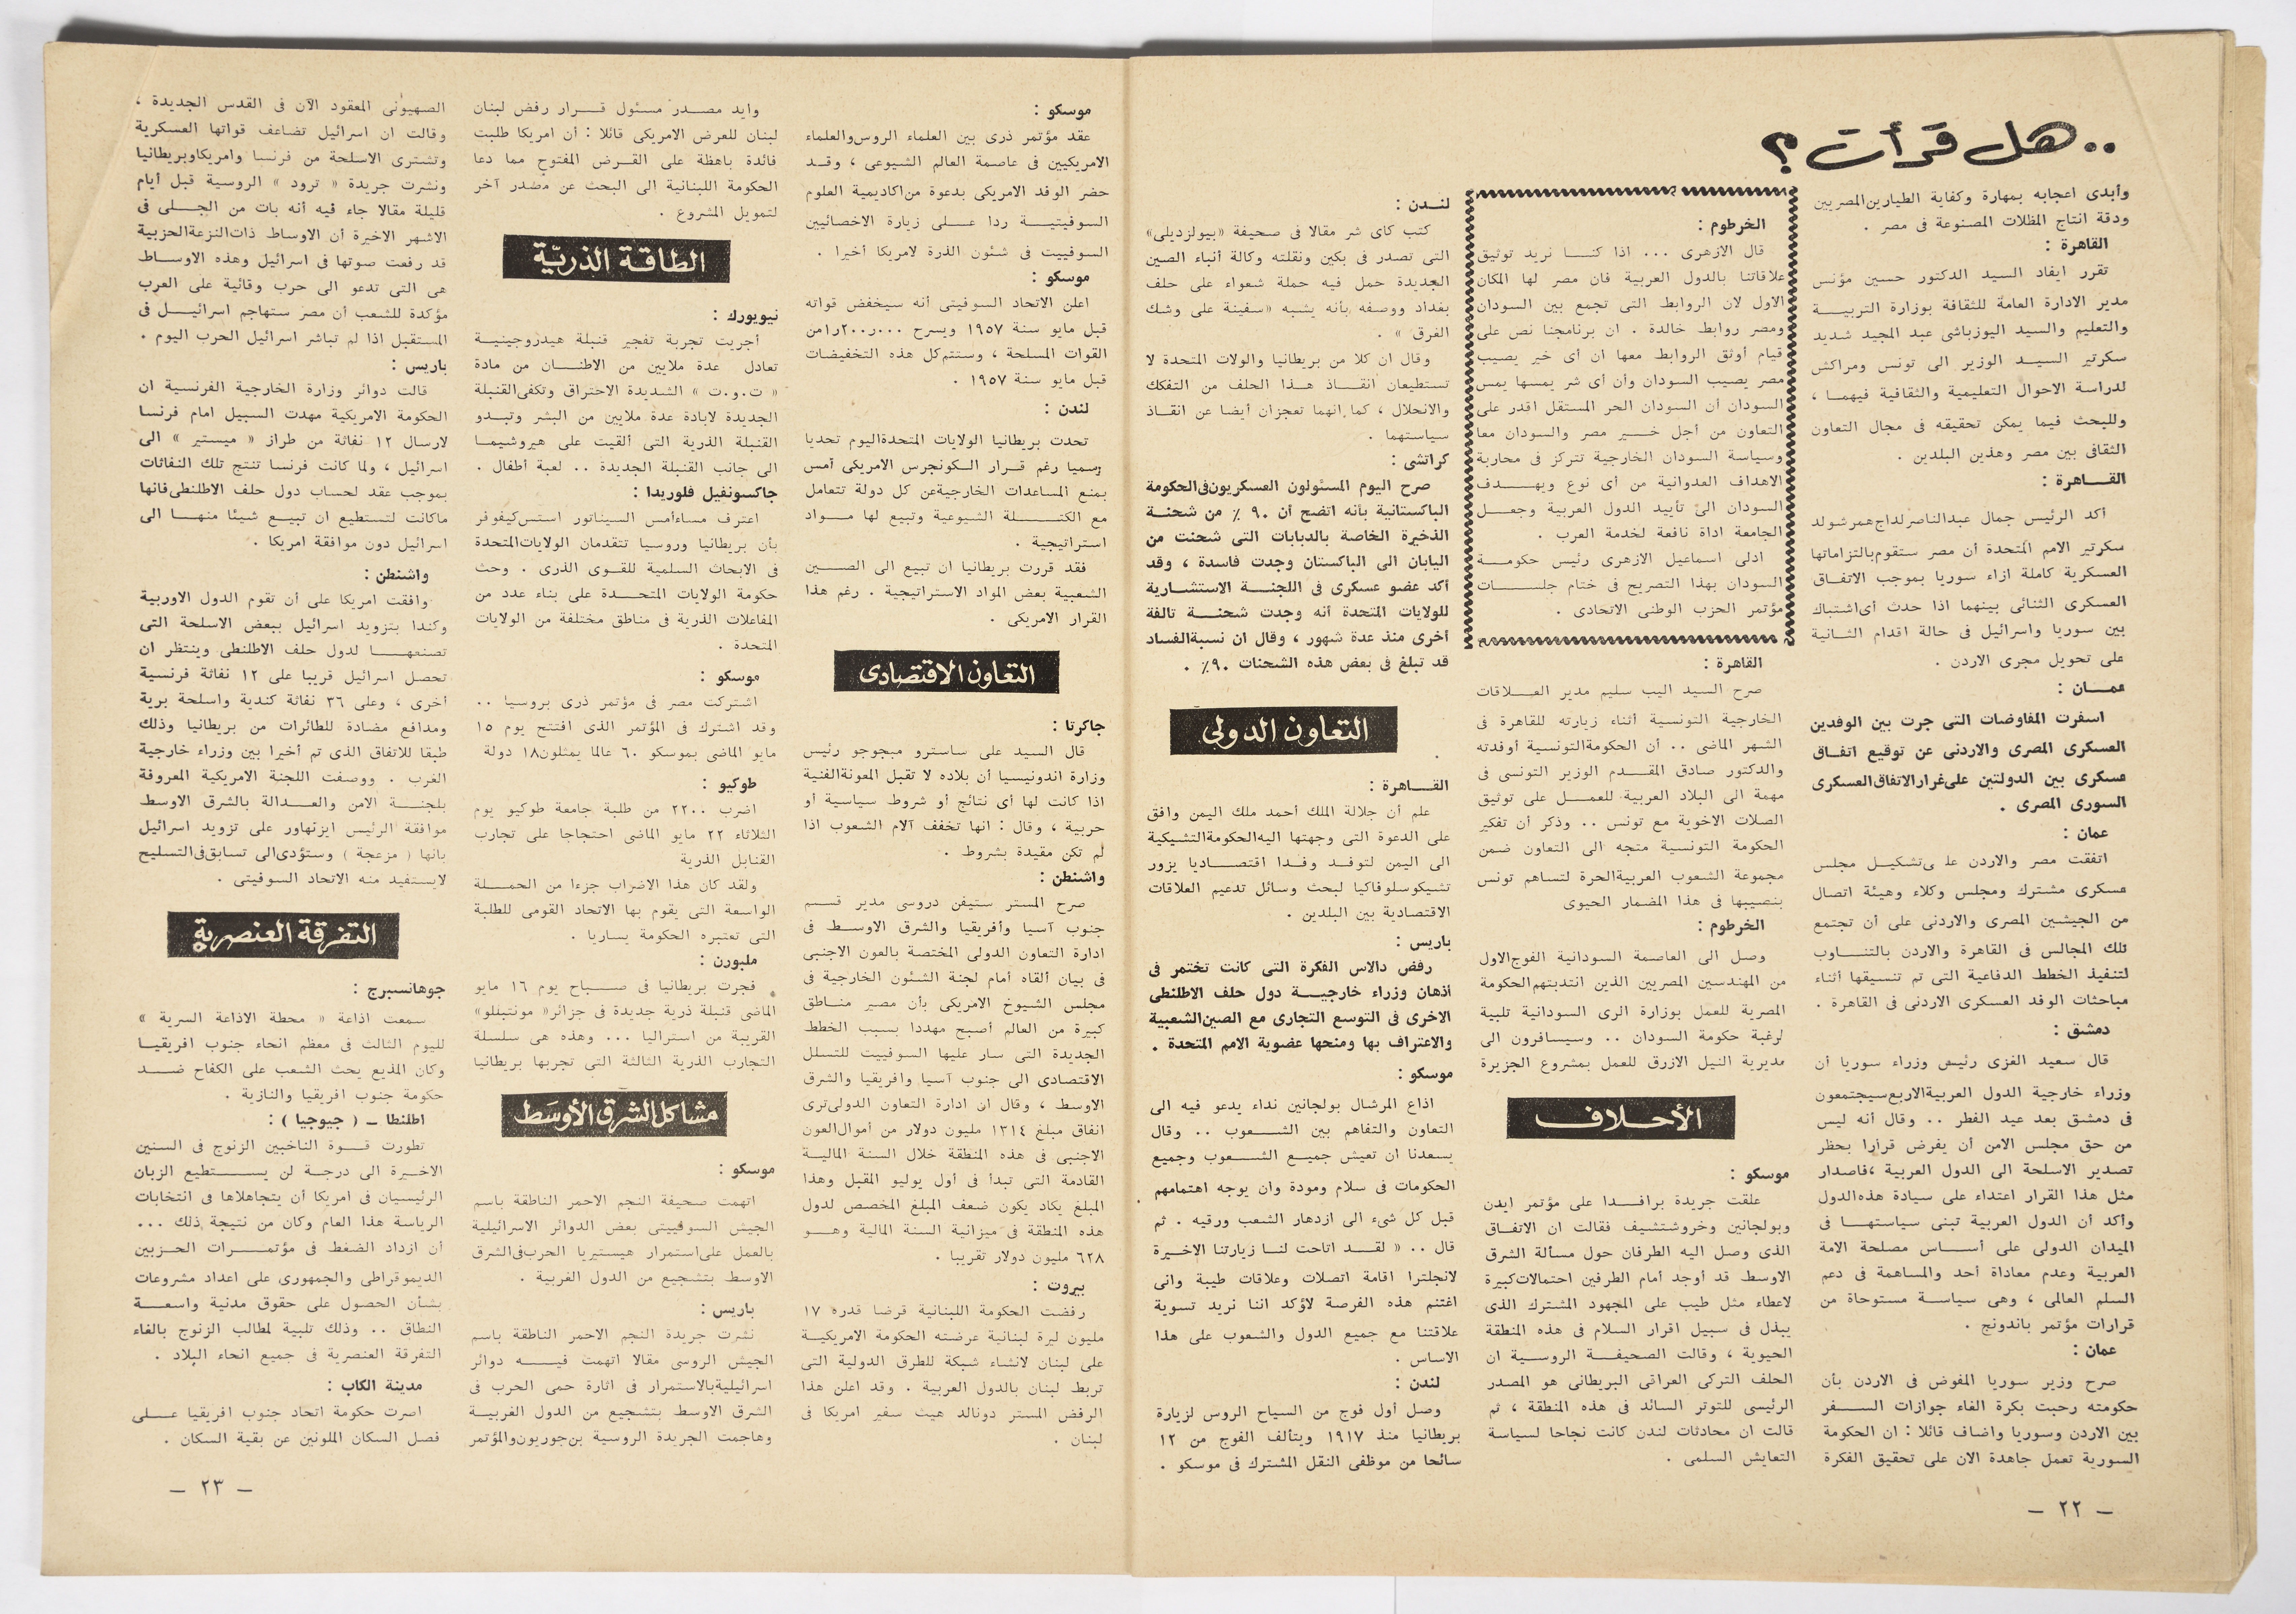 .. هل قرأت ؟
وأبدى اعجابه بمهارة وكفاية الطيارين المصريين
ودقة انتاج المظلات المصنوعة فى مصر .
القاهرة :
تقرر ايفاد السيد الدكتور حسين مؤنس
مدير الادارة العامة للثقافة بوزارة التربيــة
والتعليم والسيد اليوزباشى عبد المجيد شديد
سكرتير السيــد الوزير الى تونس ومراكش
لدراسة الاحوال التعليمية والثقافية فيهمـا ،
وللبحث فيما يمكن تحقيقه فى مجال التعاون
الثقافى بين مصر وهذين البلدين .
القــاهرة :
أكد الرئيس جمال عبدالناصر لداج همرشولد
سكرتير الامم المتحدة أن مصر ستقوم بالتزاماتها
العسكرية كاملة ازاء سوريا بموجب الاتفـاق
العسكرى الثنائى بينهما اذا حدث أى اشتباك
بين سوريا واسرائيل فى حالة اقدام الثـانية
على تحويل مجرى الاردن .
عمــان :
اسفرت المفاوضات التى جرت بين الوفدين
العسكرى المصرى والاردنى عن توقيع اتفـاق
عسكرى بين الدولتين على غرار الاتفاق العسكرى
السورى المصرى .
عمان :
اتفقت مصر والاردن على تشكيــل مجلس
عسكرى مشترك ومجلس وكلاء وهيئة اتصال
من الجيشين المصرى والاردنى على أن تجتمع
تلك المجالس فى القاهرة والاردن بالتنــاوب
لتنفيذ الخطط الدفاعية التى تم تنسيقها أثناء
مباحثات الوفد العسكرى الاردنى فى القاهرة .
دمشق :
قال سعيد الغزى رئيس وزراء سوريا أن
وزراء خارجية الدول العربية الاربع سيجتمعون
فى دمشق بعد عيد الفطر .. وقال أنه ليس
من حق مجلس الامن أن يفرض قرارا بحظر
تصدير الاسلحة الى الدول العربية ، فاصدار
مثل هذا القرار اعتداء على سيادة هذه الدول
وأكد أن الدول العربية تبنى سياستهـا فى
الميدان الدولى على أسـاس مصلحة الامة
العربية وعدم معاداة أحد والمساهمة فى دعم
السلم العالمى ، وهى سياسة مستوحاة من
قرارات مؤتمر باندونج .
عمان :
صرح وزير سوريا المفوض فى الاردن بأن
حكومته رحبت بكرة الغاء جوازات الســفر
بين الاردن وسوريا واضاف قائلا : ان الحكومة
السورية تعمل جاهدة الان على تحقيق الفكرة
الخرطوم :
قال الازهرى ... اذا كنـا نريد توثيق
علاقاتنا بالدول العربية فان مصر لها المكان
الاول لان الروابط التى تجمع بين السودان
ومصر روابط خالدة . ان برنامجنا نص على
قيام أوثق الروابط معها ان أى خير يصيب
مصر يصيب السودان وأن أى شر يمسها يمس
السودان أن السودان الحر المستقل اقدر على
التعاون من أجل خــير مصر والسودان معا
وسياسة السودان الخارجية تتركز فى محاربة
الاهداف العدوانية من أى نوع ويهــدف
السودان الى تأييد الدول العربية وجعــل
الجامعة اداة نافعة لخدمة العرب .
ادلى اسماعيل الازهرى رئيس حكومــة
السودان بهذا التصريح فى ختام جلسـات
مؤتمر الحزب الوطنى الاتحادى .
القاهرة :
صرح السيد اليب سليم مدير العـلاقات
الخارجية التونسية أثناء زيارته للقاهرة فى
الشهر الماضى .. أن الحكومة التونسية أوفدته
والدكتور صادق المقـدم الوزير التونسى فى
مهمة الى البلاد العربية للعمــل على توثيق
الصلات الاخوية مع تونس .. وذكر أن تفكير
الحكومة التونسية متجه الى التعاون ضمن
مجموعة الشعوب العربية الحرة لتساهم تونس
بنصيبها فى هذا المضمار الحيوى
الخرطوم :
وصل الى العاصمة السودانية الفوج الاول
من المهندسين المصريين الذين انتدبتهم الحكومة
المصرية للعمل بوزارة الرى السودانية تلبية
لرغبة حكومة السودان .. وسيسافرون الى
مديرية النيل الازرق للعمل بمشروع الجزيرة
الأحلاف
موسكو :
علقت جريدة برافـدا على مؤتمر ايدن
وبولجانين وخروشتشيف فقالت ان الاتفـاق
الذى وصل اليه الطرفان حول مسألة الشرق
الاوسط قد أوجد أمام الطرفين احتمالات كبيرة
لاعطاء مثل طيب على المجهود المشترك الذى
يبذل فى سبيل اقرار السلام فى هذه المنطقة
الحيوية ، وقالت الصحيفــة الروسـية ان
الحلف التركى العراقى البريطانى هو المصدر
الرئيسى للتوتر السائد فى هذه المنطقة ، ثم
قالت ان محادثات لندن كانت نجاحا لسياسة
التعايش السلمى .
لنــدن :
كتب كاى شر مقالا فى صحيفة «بيولزديلى»
التى تصدر فى بكين ونقلته وكالة أنباء الصين
الجديدة حمل فيه حملة شعواء على حلف
بغداد ووصفه بأنه يشبه «سفينة على وشك
الغرق » .
وقال ان كلا من بريطانيا والولات المتحدة لا
تستطيعان انقـاذ هـذا الحلف من التفكك
والانحلال ، كما انهما تعجزان أيضا عن انقـاذ
سياستهما .
كراتشى :
صرح اليوم المسئولون العسكريون فى الحكومة
الباكستانية بأنه اتضح أن ٩٠ ٪ من شحنـة
الذخيرة الخاصة بالدبابات التى شحنت من
اليابان الى الباكستان وجدت فاسدة ، وقد
أكد عضو عسكرى فى اللجنــة الاستشـارية
للولايات المتحدة أنه وجدت شحنــة تالفة
أخرى منذ عدة شهور ، وقال ان نسبة الفساد
قد تبلغ فى بعض هذه الشحنات ٩٠٪ .
التعاون الدولى
القــاهرة :
علم أن جلالة الملك أحمد ملك اليمن وافق
على الدعوة التى وجهتها اليه الحكومة التشيكية
الى اليمن لتوفـد وفـدا اقتصـاديا يزور
تشيكوسلوفاكيا لبحث وسائل تدعيم العلاقات
الاقتصادية بين البلدين .
باريس :
رفض دالاس الفكرة التى كانت تختمر فى
أذهان وزراء خارجيــة دول حلف الاطلنطى
الاخرى فى التوسع التجارى مع الصين الشعبية
والاعتراف بها ومنحها عضوية الامم المتحدة .
موسكو :
اذاع المرشال بولجانين نداء يدعو فيه الى
التعاون والتفاهم بين الشــعوب .. وقال
يسعدنا ان تعيش جميـع الشــعوب وجميع
الحكومات فى سلام ومودة وان يوجه اهتمامهم
قبل كل شىء الى ازدهار الشعب ورقيه . ثم
قال .. « لقــد اتاحت لنـا زيارتنا الاخـيرة
لانجلترا اقامة اتصلات وعلاقات طيبة وانى
اغتنم هذه الفرصة لاؤكد اننا نريد تسوية
علاقتنا مع جميع الدول والشعوب على هذا
الاساس .
لندن :
وصل أول فوج من السياح الروس لزيارة
بريطانيا منذ ١٩١٧ ويتألف الفوج من ١٢
سائحا من موظفى النقل المشترك فى موسكو .
– ٢٢ –
موسكو :
عقد مؤتمر ذرى بين العلماء الروس والعلماء
الامريكيين فى عاصمة العالم الشيوعى ، وقـد
حضر الوفد الامريكى بدعوة من اكاديمية العلوم
السوفيتيــة ردا عــلى زيارة الاخصائيين
السوفييت فى شئون الذرة لامريكا أخيرا .
موسكو :
اعلن الاتحاد السوفيتى أنه سيخفض قواته
قبل مايو سنة ١٩٥٧ ويسرح ١٫٢٠٠٫٠٠٠ من
القوات المسلحة ، وستتم كل هذه التخفيضات
قبل مايو سنة ١٩٥٧ .
لندن :
تحدت بريطانيا الولايات المتحدة اليوم تحديا
رسميا رغم قـرار الـكونجرس الامريكى أمس
بمنع المساعدات الخارجية عن كل دولة تتعامل
مع الكتــلة الشيوعية وتبيع لها مـواد
استراتيجية .
فقد قررت بريطانيا ان تبيع الى الصــين
الشعبية بعض المواد الاستراتيجية . رغم هذا
القرار الامريكى .
التعاون الاقتصادى
جاكرتا :
قال السيد على ساسترو ميجوجو رئيس
وزارة اندونيسيا أن بلاده لا تقبل المعونة الفنية
اذا كانت لها أى نتائج أو شروط سياسية أو
حربية ، وقال : انها تخفف آلام الشعوب اذا
لم تكن مقيدة بشروط .
واشنطن :
صرح المستر ستيفن دروسى مدير قسـم
جنوب آسيا وأفريقيا والشرق الاوسـط فى
ادارة التعاون الدولى المختصة بالعون الاجنبى
فى بيان ألقاه أمام لجنة الشئون الخارجية فى
مجلس الشيوخ الامريكى بأن مصير منـاطق
كبيرة من العالم أصبح مهددا بسبب الخطط
الجديدة التى سار عليها السوفييت للتسلل
الاقتصادى الى جنوب آسيا وافريقيا والشرق
الاوسط ، وقال ان ادارة التعاون الدولى ترى
انفاق مبلغ ١٣١٤ مليون دولار من أموال العون
الاجنبى فى هذه المنطقة خلال السنة الماليـة
القادمة التى تبدأ فى أول يوليو المقبل وهذا
المبلغ يكاد يكون ضعف المبلغ المخصص لدول
هذه المنطقة فى ميزانية السنة المالية وهــو
٦٢٨ مليون دولار تقريبا .
بيروت :
رفضت الحكومة اللبنانية قرضا قدره ١٧
مليون ليرة لبنانية عرضته الحكومة الامريكيـة
على لبنان لانشاء شبكة للطرق الدولية التى
تربط لبنان بالدول العربية . وقد اعلن هذا
الرفض المستر دونالد هيث سفير امريكا فى
لبنان .
وايد مصـدر مسئول قــرار رفض لبنان
لبنان للعرض الامريكى قائلا : أن امريكا طلبت
فائدة باهظة على القـرض المفتوح مما دعا
الحكومة اللبنانية الى البحث عن مصدر آخر
لتمويل المشروع .
الطاقة الذريّة
نيويورك :
أجريت تجربة تفجير قنبلة هيدروجينيـة
تعادل عدة ملايين من الاطنــان من مادة
« ت.و.ت » الشديدة الاحتراق وتكفى القنبلة
الجديدة لابادة عدة ملايين من البشر وتبـدو
القنبلة الذرية التى ألقيت على هيروشيمـا
الى جانب القنبلة الجديدة .. لعبة أطفال .
جاكسونفيل فلوريدا :
اعترف مساء أمس السيناتور استس كيفوفر
بأن بريطانيا وروسيا تتقدمان الولايات المتحدة
فى الابحاث السلمية للقـوى الذرى . وحث
حكومة الولايات المتحــدة على بناء عدد من
المفاعلات الذرية فى مناطق مختلفة من الولايات
المتحدة .
موسكو :
اشتركت مصر فى مؤتمر ذرى بروسيا ..
وقد اشترك فى المؤتمر الذى افتتح يوم ١٥
مايو الماضى بموسكو ٦٠ عالما يمثلون ١٨ دولة
طوكيو :
اضرب ٢٢٠٠ من طلبة جامعة طوكيو يوم
الثلاثاء ٢٢ مايو الماضى احتجاجا على تجارب
القنابل الذرية
ولقد كان هذا الاضراب جزءا من الحمــلة
الواسعة التى يقوم بها الاتحاد القومى للطلبة
التى تعتبره الحكومة يساريا .
ملبورن :
فجرت بريطانيا فى صــباح يوم ١٦ مايو
الماضى قنبلة ذرية جديدة فى جزائر« مونتبللو»
القريبة من استراليا ... وهذه هى سلسلة
التجارب الذرية الثالثة التى تجربها بريطانيا
مشاكل الشرق الأوسَط
موسكو :
اتهمت صحيفة النجم الاحمر الناطقة باسم
الجيش السوفييتى بعض الدوائر الاسرائيلية
بالعمل على استمرار هيستيريا الحرب فى الشرق
الاوسط بتشجيع من الدول الغربية .
باريس :
نشرت جريدة النجم الاحمر الناطقة باسم
الجيش الروسى مقالا اتهمت فيــه دوائر
اسرائيلية بالاستمرار فى اثارة حمى الحرب فى
الشرق الاوسط بتشجيع من الدول الغربيـة
وهاجمت الجريدة الروسية بن جوريون والمؤتمر
الصهيونى المعقود الآن فى القدس الجديدة ،
وقالت ان اسرائيل تضاعف قواتها العسكرية
وتشترى الاسلحة من فرنسا وامريكا وبريطانيا
ونشرت جريدة « ترود » الروسية قبل أيام
قليلة مقالا جاء فيه أنه بات من الجــلى فى
الاشهر الاخيرة أن الاوساط ذات النزعة الحزبية
قد رفعت صوتها فى اسرائيل وهذه الاوسـاط
هى التى تدعو الى حرب وقائية على العرب
مؤكدة للشعب أن مصر ستهاجم اسرائيــل فى
المستقبل اذا لم تباشر اسرائيل الحرب اليوم .
باريس :
قالت دوائر وزارة الخارجية الفرنسية ان
الحكومة الامريكية مهدت السبيل امام فرنسا
لارسال ١٢ نفاثة من طراز « ميستير » الى
اسرائيل ، ولما كانت فرنسا تنتج تلك النفاثات
بموجب عقد لحساب دول حلف الاطلنطى فانها
ماكانت لتستطيع ان تبيــع شيئا منهـا الى
اسرائيل دون موافقة امريكا .
واشنطن :
وافقت امريكا على أن تقوم الدول الاوربية
وكندا بتزويد اسرائيل ببعض الاسلحة التى
تصنعهـا لدول حلف الاطلنطى وينتظر ان
تحصل اسرائيل قريبا على ١٢ نفاثة فرنسية
أخرى ، وعلى ٣٦ نفاثة كندية واسلحة برية
ومدافع مضادة للطائرات من بريطانيا وذلك
طبقا للاتفاق الذى تم أخيرا بين وزراء خارجية
الغرب . ووصفت اللجنة الامريكية المعروفة
بلجنــة الامن والعــدالة بالشرق الاوسط
موافقة الرئيس ايزنهاور على تزويد اسرائيل
بانها ( مزعجة ) وستؤدى الى تسابق فى التسليح
لايستفيد منه الاتحاد السوفيتى .
التفرقة العنصرية
جوهانسبرج :
سمعت اذاعة « محطة الاذاعة السرية »
لليوم الثالث فى معظم انحاء جنوب افريقيـا
وكان المذيع يحث الشعب على الكفاح ضــد
حكومة جنوب افريقيا والنازية .
اطلنطا – ( جيوجيا ) :
تطورت قــوة الناخبين الزنوج فى السنين
الاخـيرة الى درجـة لن يســتطيع الزبان
الرئيسيان فى امريكا أن يتجاهلاها فى انتخابات
الرياسة هذا العام وكان من نتيجة ذلك ...
أن ازداد الضغط فى مؤتمــرات الحــزبين
الديموقراطى والجمهورى على اعداد مشروعات
بشأن الحصول على حقوق مدنية واسعــة
النطاق .. وذلك تلبية لمطالب الزنوج بالغاء
التفرقة العنصرية فى جميع انحاء البلاد .
مدينة الكاب :
اصرت حكومة اتحاد جنوب افريقيا عــلى
فصل السكان الملونين عن بقية السكان .
– ٢٣ –